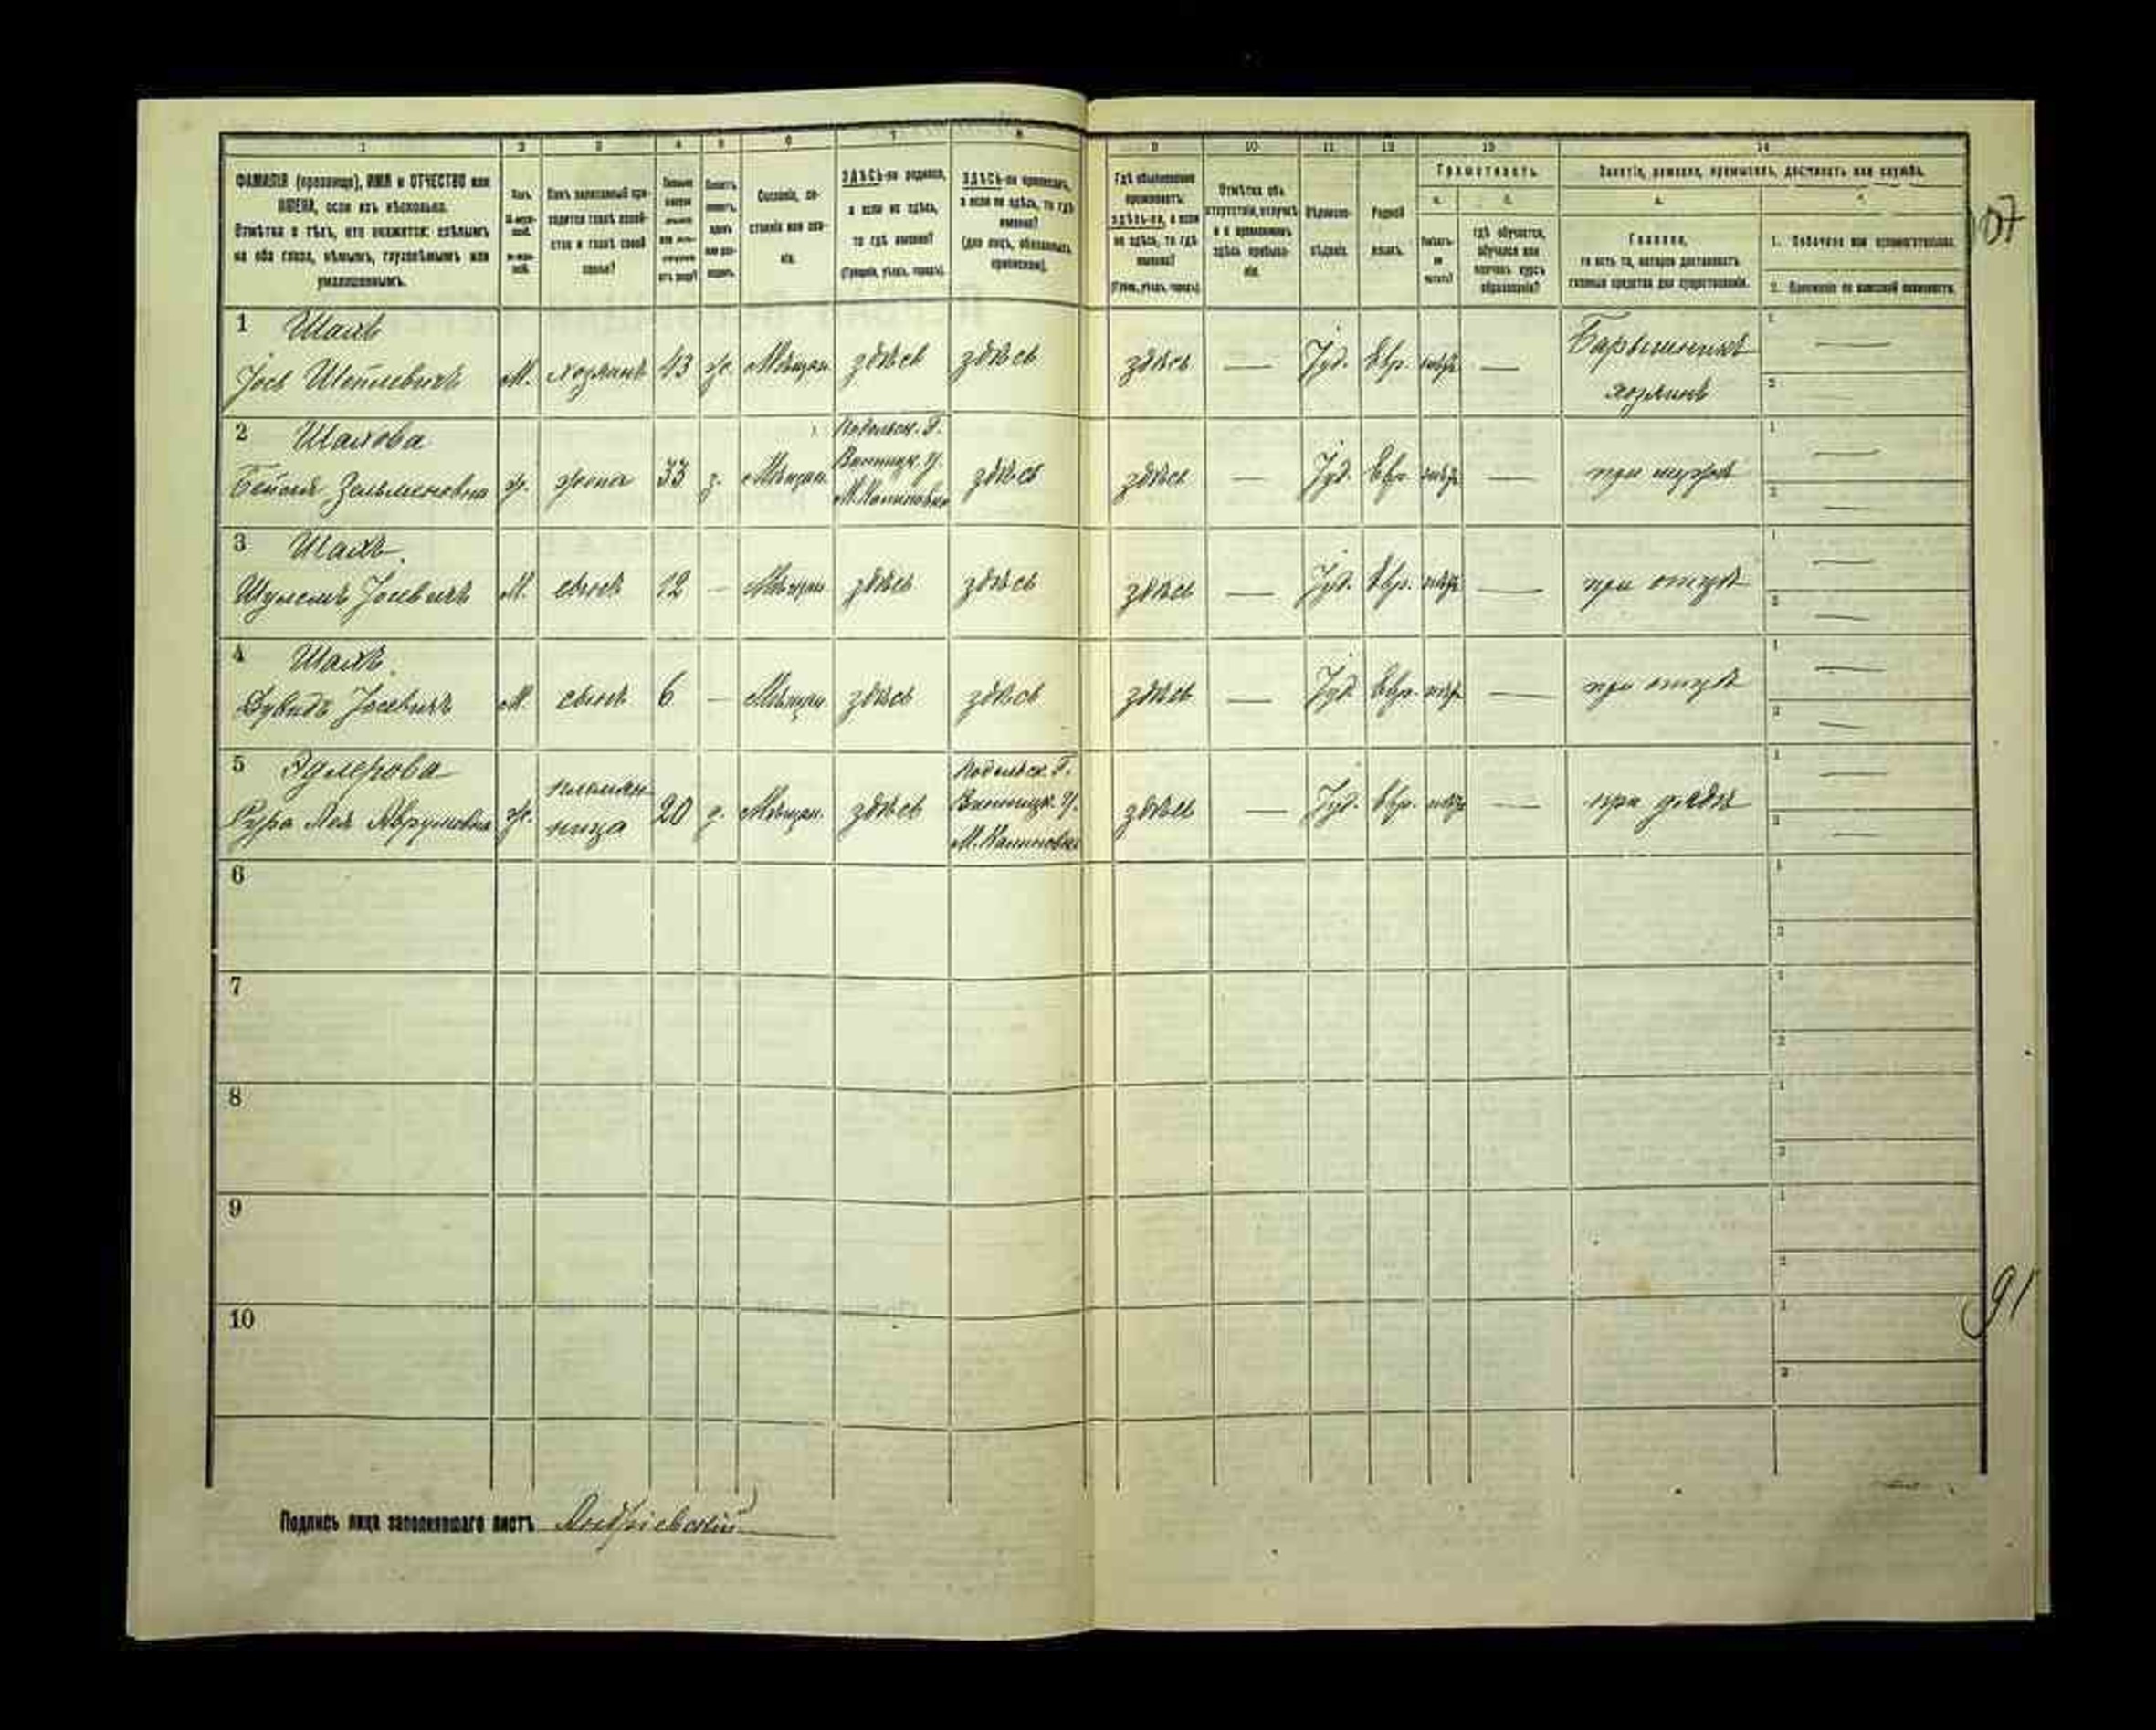 1 2 3 4 5 6 7 8 9 10 11 12 13 14
ФАМИЛІЯ (прозвище), ИМЯ и ОТЧЕСТВО или
ИМЕНА, если ихъ нѣсколько.
Отмѣтка о тѣхъ, кто окажется: слѣпымъ
на оба глаза, нѣмымъ, глухонѣмымъ или
умалишеннымъ.
Полъ.
Какъ записанный при-
ходится главѣ хозяй-
ства и главѣ своей
семьи?
Сословіе, со-
стояніе или зва-
ніе.
ЗДѢСЬ-ли родился,
а если не здѣсь,
то гдѣ именно?
(Губернія, уѣздъ, городъ).
ЗДѢСЬ-ли приписанъ,
а если не здѣсь, то гдѣ
именно?
(для лицъ, обязанныхъ
припиской).
Гдѣ обыкновенно
проживаетъ:
здѣсь-ли, а если
не здѣсь, то гдѣ
именно?
(Губ., уѣздъ, городъ).
Отмѣтка объ
отсутствіи, отлучкѣ
и о временномъ
здѣсь пребыва-
ніи.
Вѣроиспо-
вѣданіе.
Родной
языкъ.
Грамотность.
а. б.
Умѣетъ-
ли
читать?
гдѣ обучается,
обучался или
кончилъ курсъ
образованія?
Занятіе, ремесло, промыселъ, должность или служба.
Главное,
то есть то, которое доставляетъ
главныя средства для существованія.
1. Побочное или вспомогательное.
2. Положеніе по воинской повинности.
107
1 Шахъ
М. хозяинъ 43 ж. Мѣщан. здѣсь здѣсь здѣсь — Іуд. Евр. —
Барышникъ
хозяинъ
2 Шахова
Зельменовна ж. жена 33 з. Мѣщан.
Подольск. Г.
Винницк. У.
М. Калиновка
здѣсь здѣсь — Іуд. Евр. — при мужѣ
3 Шахъ
Іосевичъ М. сынъ 12 — Мѣщан. здѣсь здѣсь здѣсь — Іуд. Евр. — при отцѣ
4 Шахъ
Дувидъ Іосевичъ М. сынъ 6 — Мѣщан. здѣсь здѣсь здѣсь — Іуд. Евр. — при отцѣ
5
Сура Лея Аврумовна ж.
племян-
ница
20 д. Мѣщан. здѣсь
Подольск. Г.
Винницк. У.
М. Калиновка
здѣсь — Іуд. Евр. — при дядѣ
6
7
8
9
91
10
Подпись лица заполнявшаго листъ Андріевскій